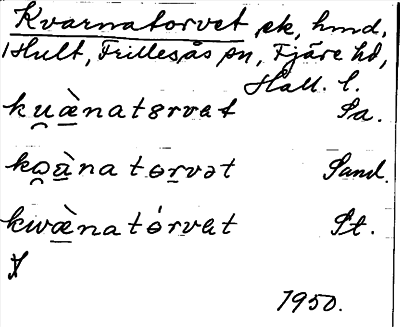 Kvarnatorvet, ek, hmd,
Hult, Frillesås sn, Fjäre hd,
Hall. l.
ku̯æ̀nat8rvet Sa.
ko̯ànatorvət Sand.
kwæ̀natórvet St.
1950.